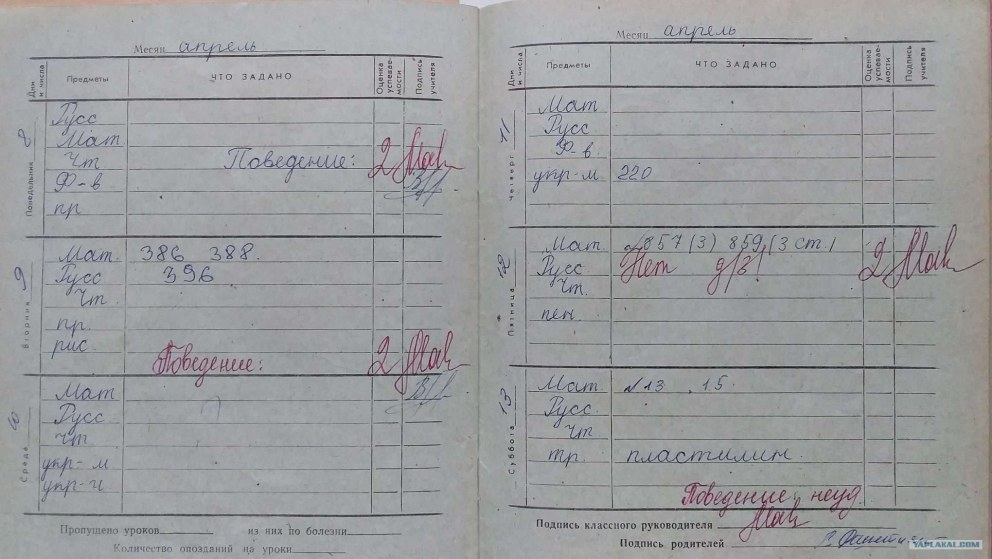 Месяц апрель
Дни и числа Предметы ЧТО ЗАДАНО Оценка успевае-мости Подпись учителя
Понедельник 8
Русс
Мат
Чт Поведение: 2
Ф-в
пр
Вторник 9
Мат 386 388.
Русс 396
Чт
пр.
рис.
Поведение: 2
Среда 10
Мат
Русс
Чт
укр-м
укр-ч
Пропущено уроков из них по болезни
Количество опозданий на уроки
Месяц апрель
Дни и числа Предметы ЧТО ЗАДАНО Оценка успевае-мости Подпись учителя
Четверг 11
Мат
Русс
Ф-в
укр-м 220
Пятница 12
Мат. 857 (3) 859 (3 ст.)
Русс Нет д/з! 2
Чт.
пен
Суббота 13
Мат №13 , 15.
Русс
Чт
тр. пластилин.
Поведение неуд.
Подпись классного руководителя
Подпись родителей
YAPLAKAL.COM